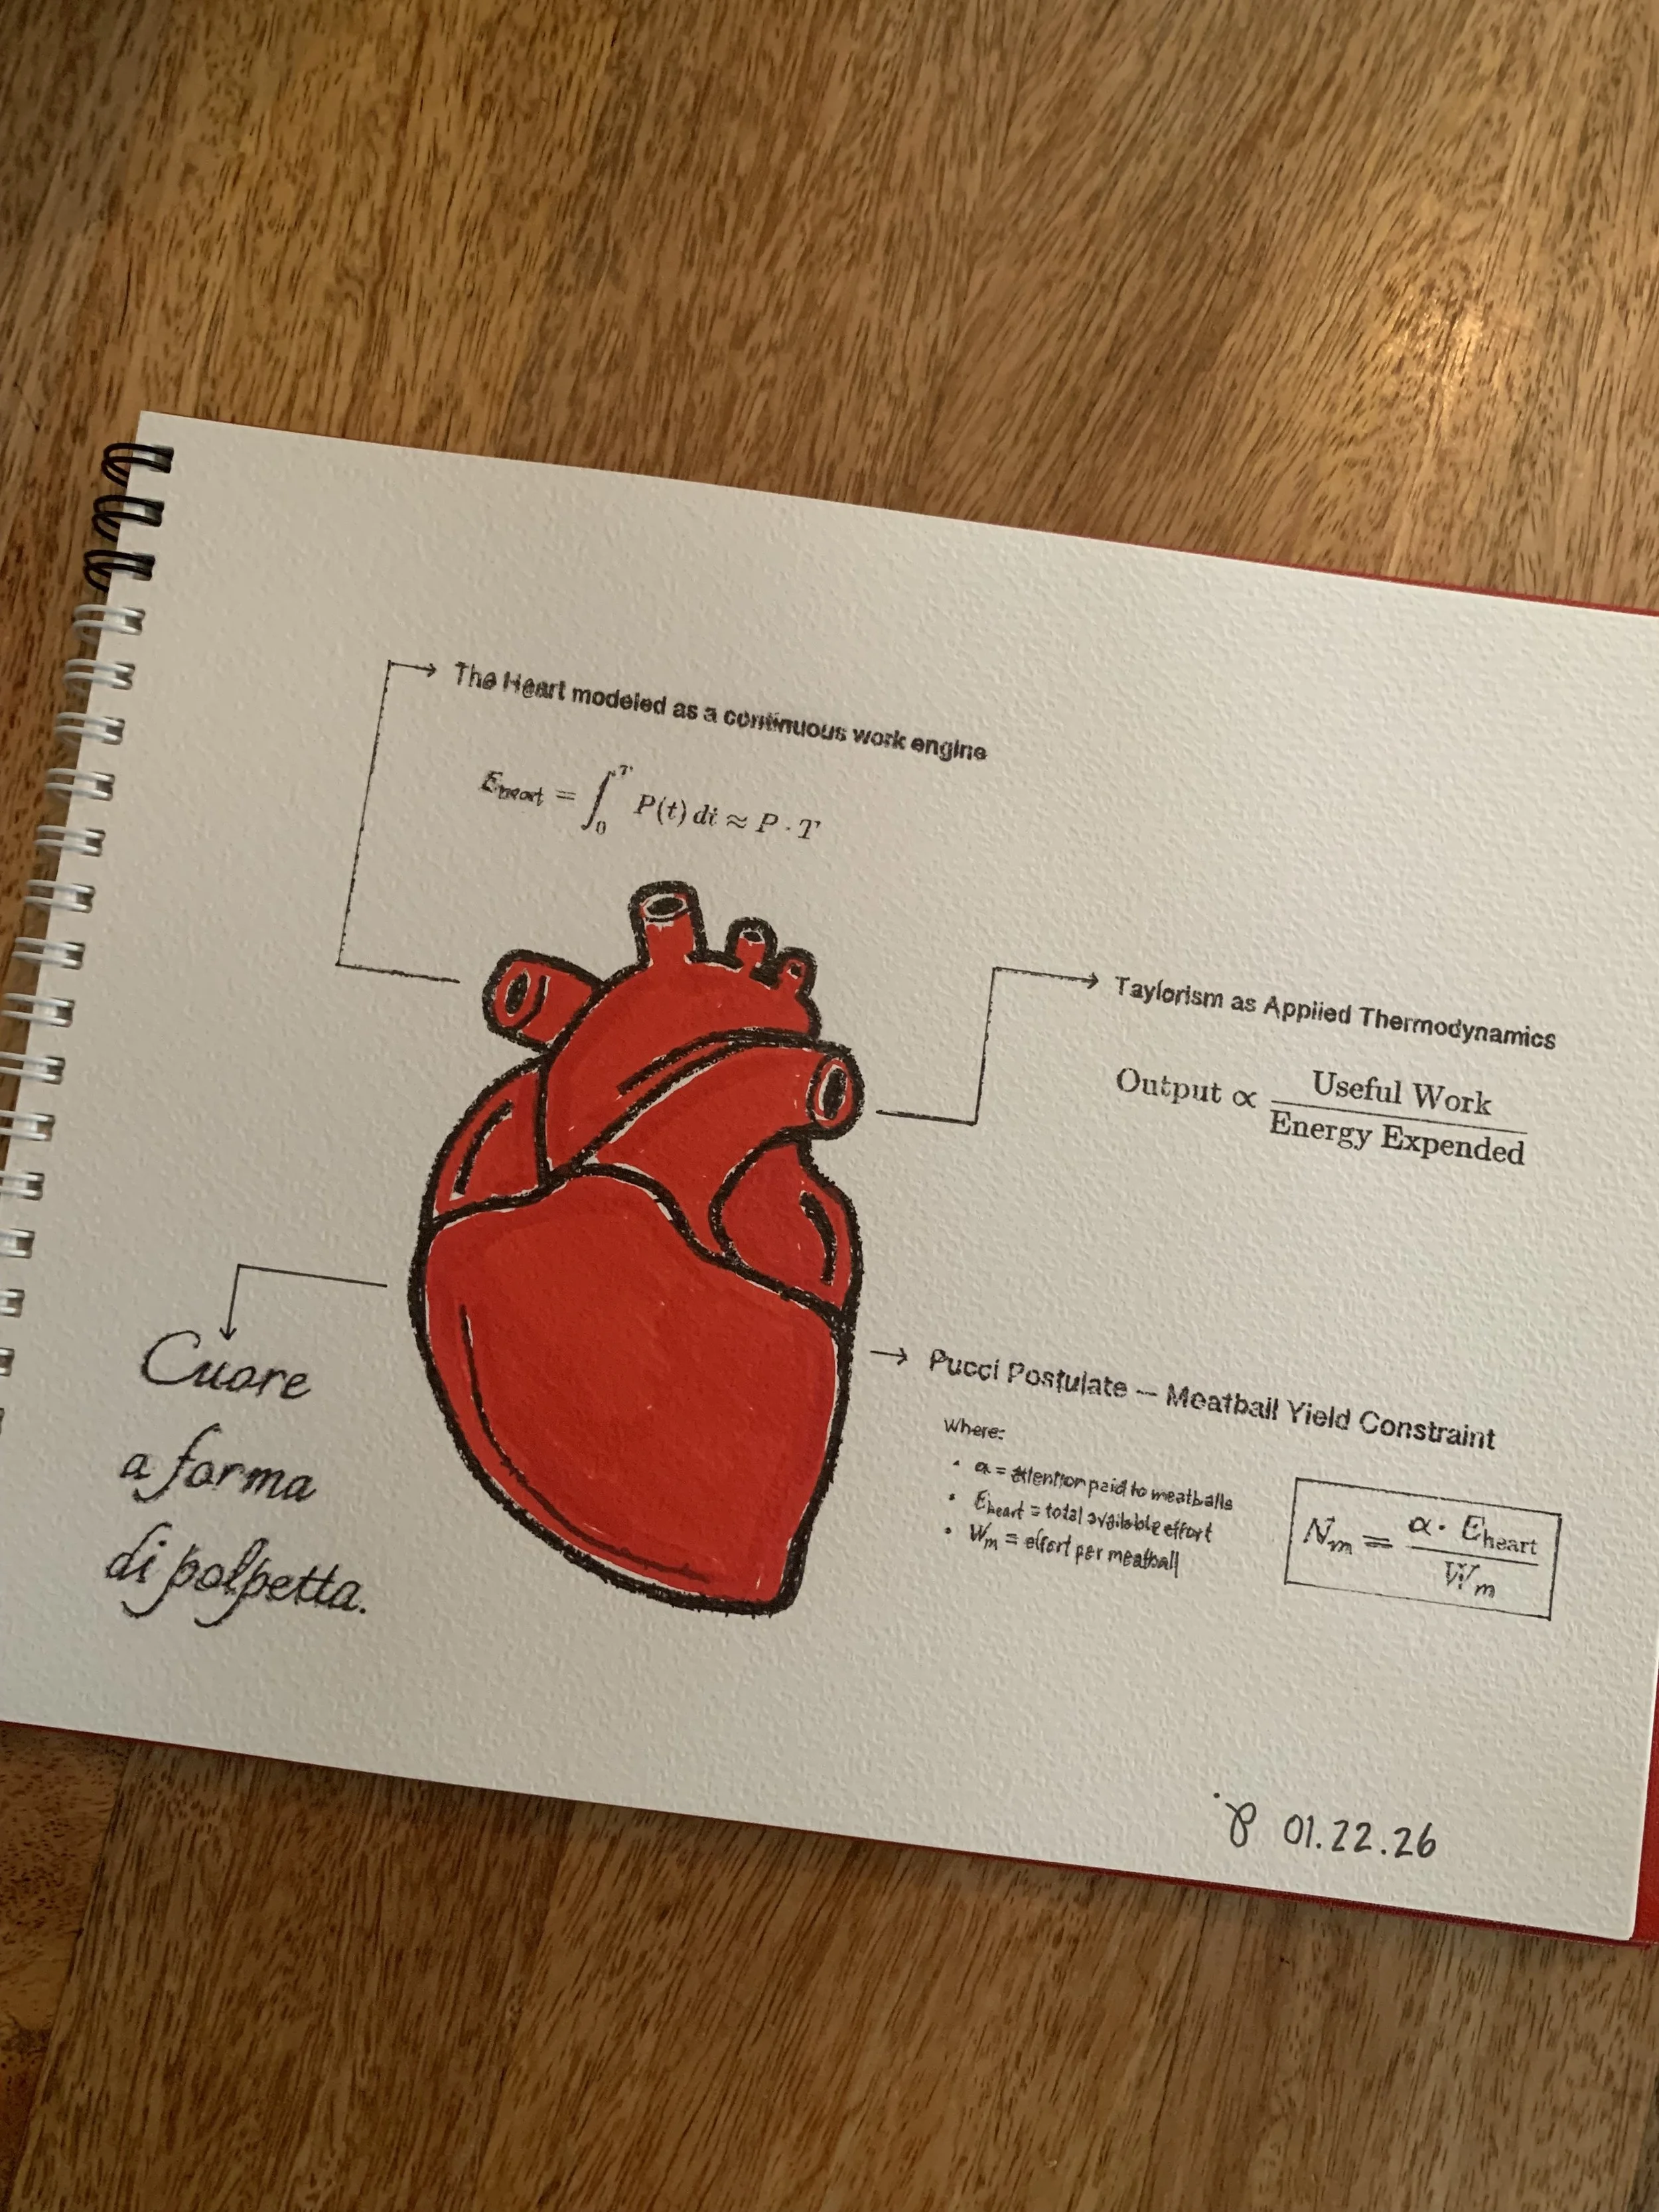 The Heart modeled as a continuous work engine
E_heart = ∫₀ᵀ P(t) dt ≈ P · T
Taylorism as Applied Thermodynamics
Output ∝ Useful Work / Energy Expended
Cuore
a forma
di polpetta.
Pucci Postulate — Meatball Yield Constraint
where:
• α = attention paid to meatballs
• E_heart = total available effort
• W_m = effort per meatball
N_m = α · E_heart / W_m
01.22.26